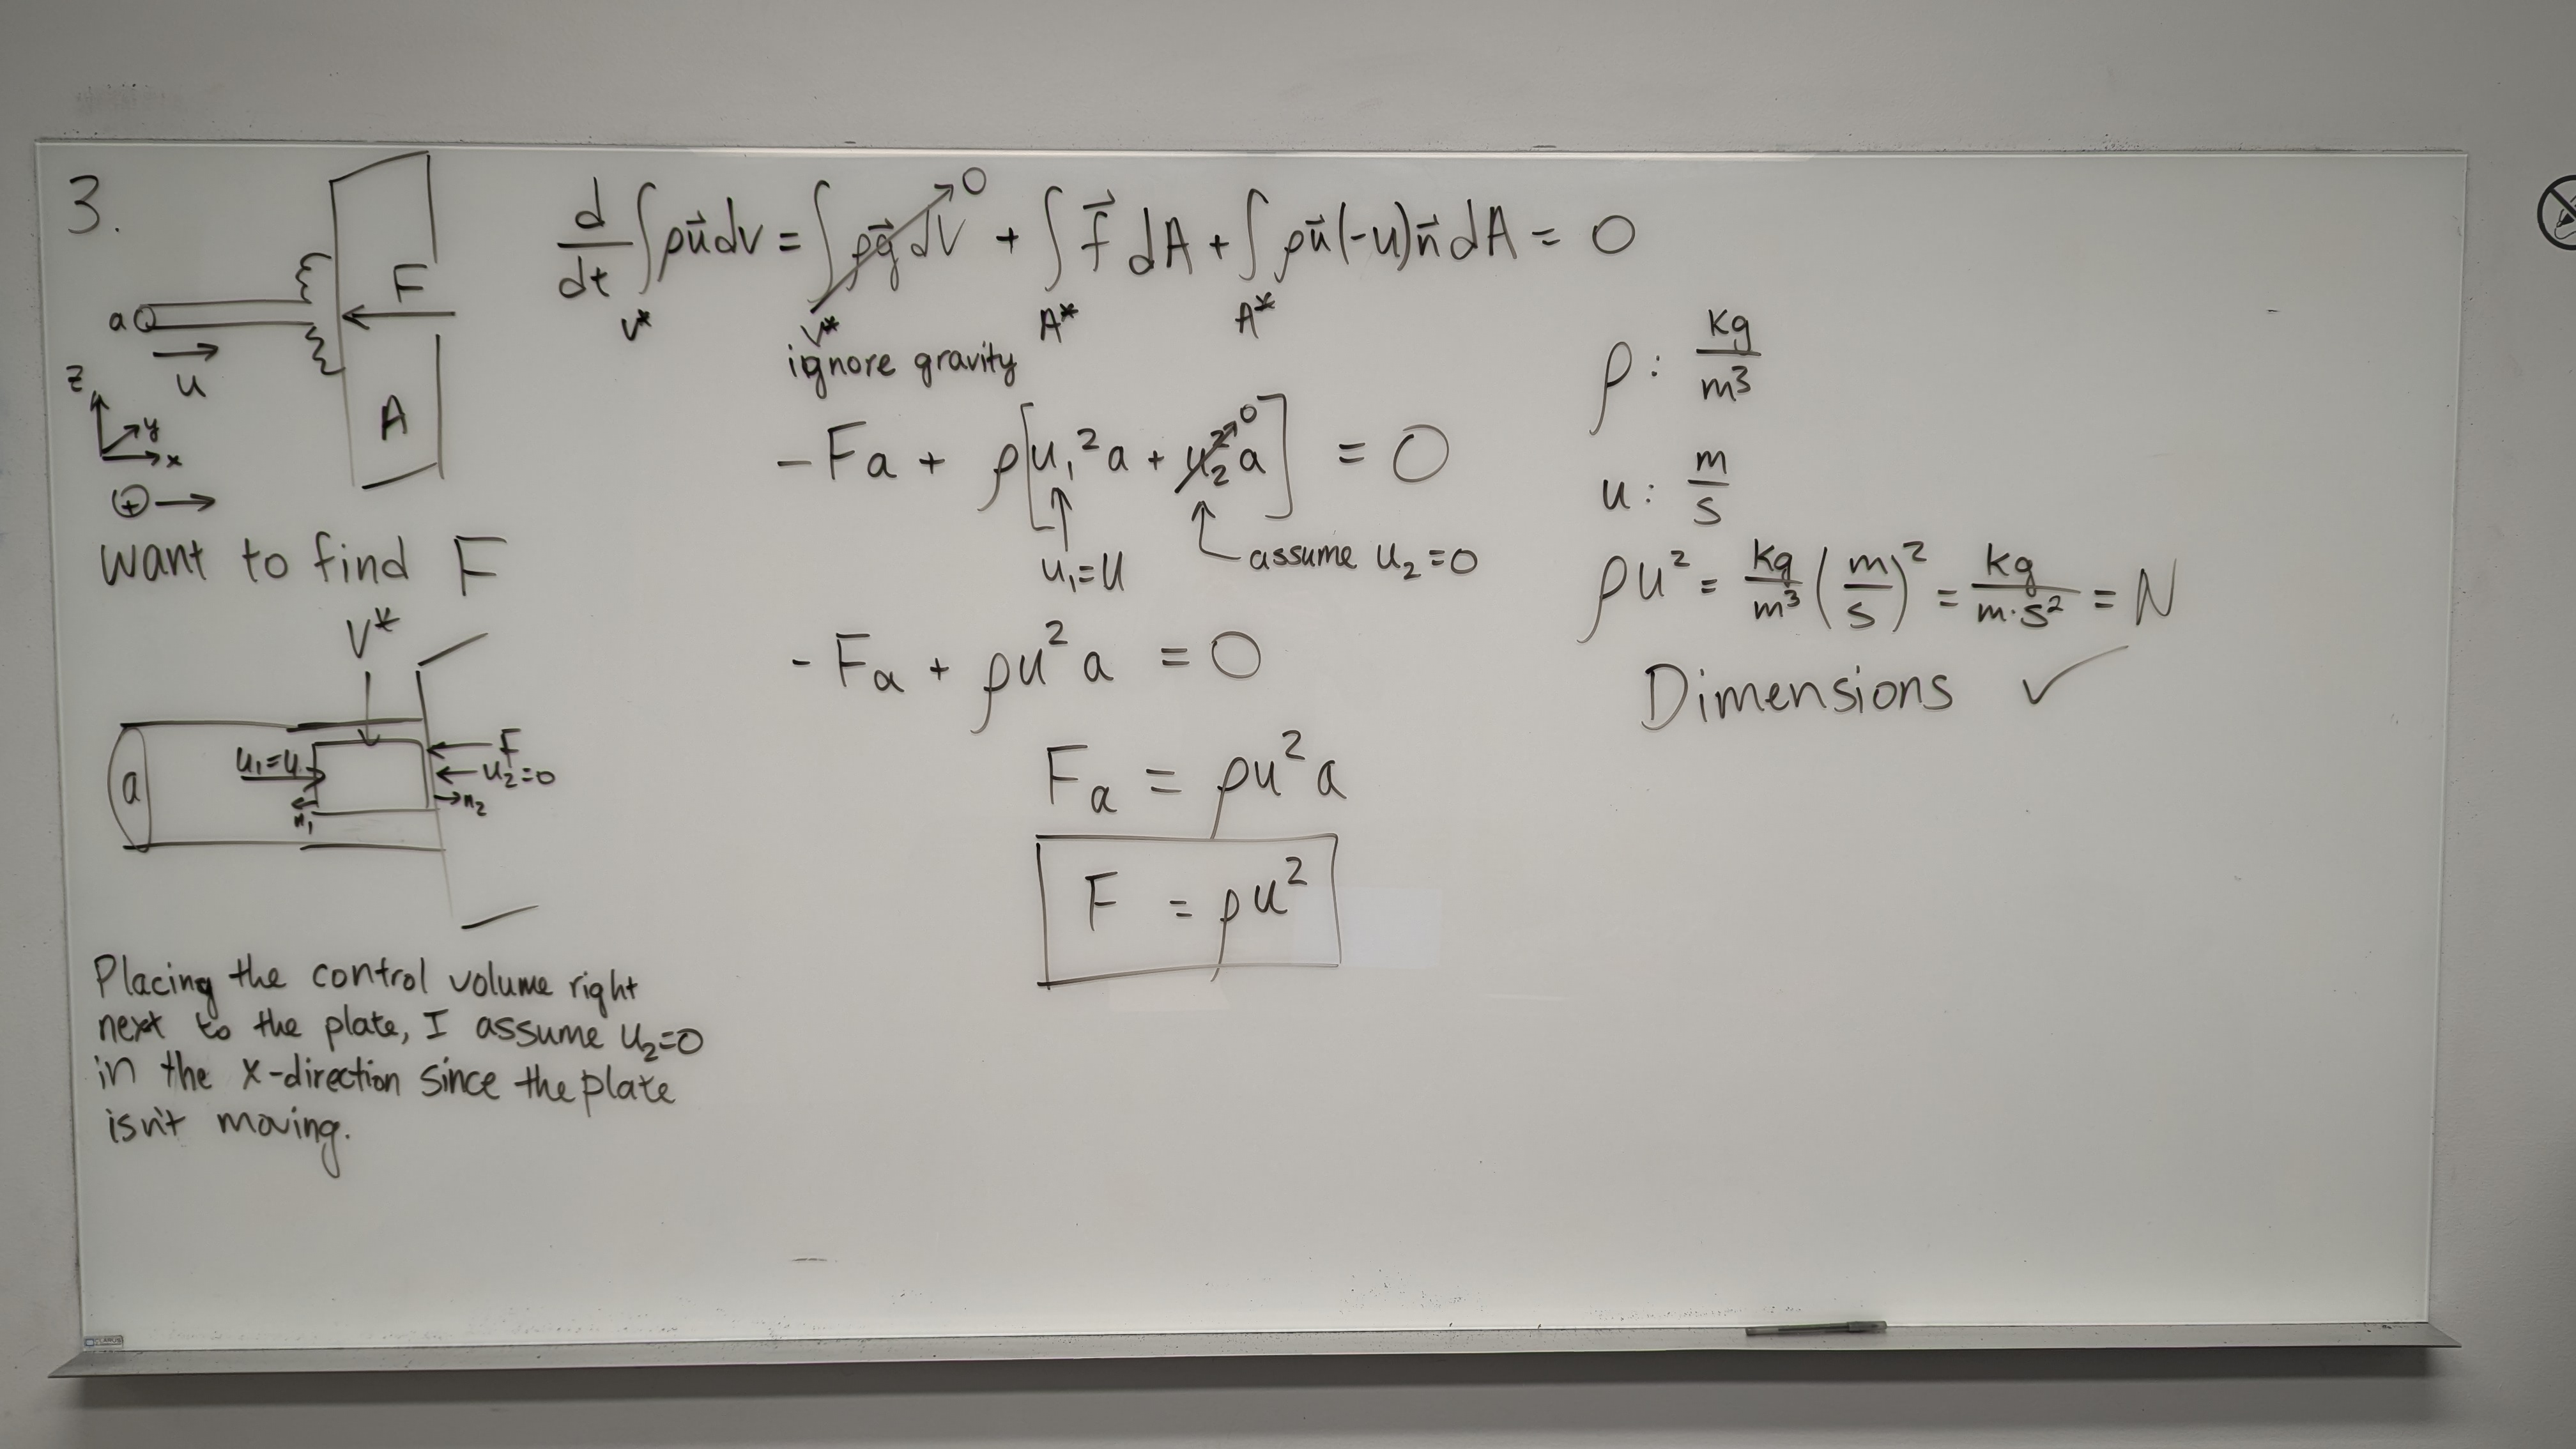 3.
a
u
F
A
z
y
x
⊕ →
want to find F
V*
a
u₁=u
n₁
F
u₂=0
n₂
Placing the control volume right
next to the plate, I assume u₂=0
in the x-direction since the plate
isn't moving.
d/dt ∫_V* ρu⃗ dV = ∫_V* ρg⃗ dV → 0 + ∫_A* f⃗ dA + ∫_A* ρu⃗(-u)n⃗ dA = 0
ignore gravity
-Fa + ρ[u₁²a + u₂²a → 0] = 0
u₁=u
assume u₂=0
-Fa + ρu²a = 0
Fa = ρu²a
F = ρu²
ρ: kg/m³
u: m/s
ρu² = kg/m³ (m/s)² = kg/m·s² = N
Dimensions ✓